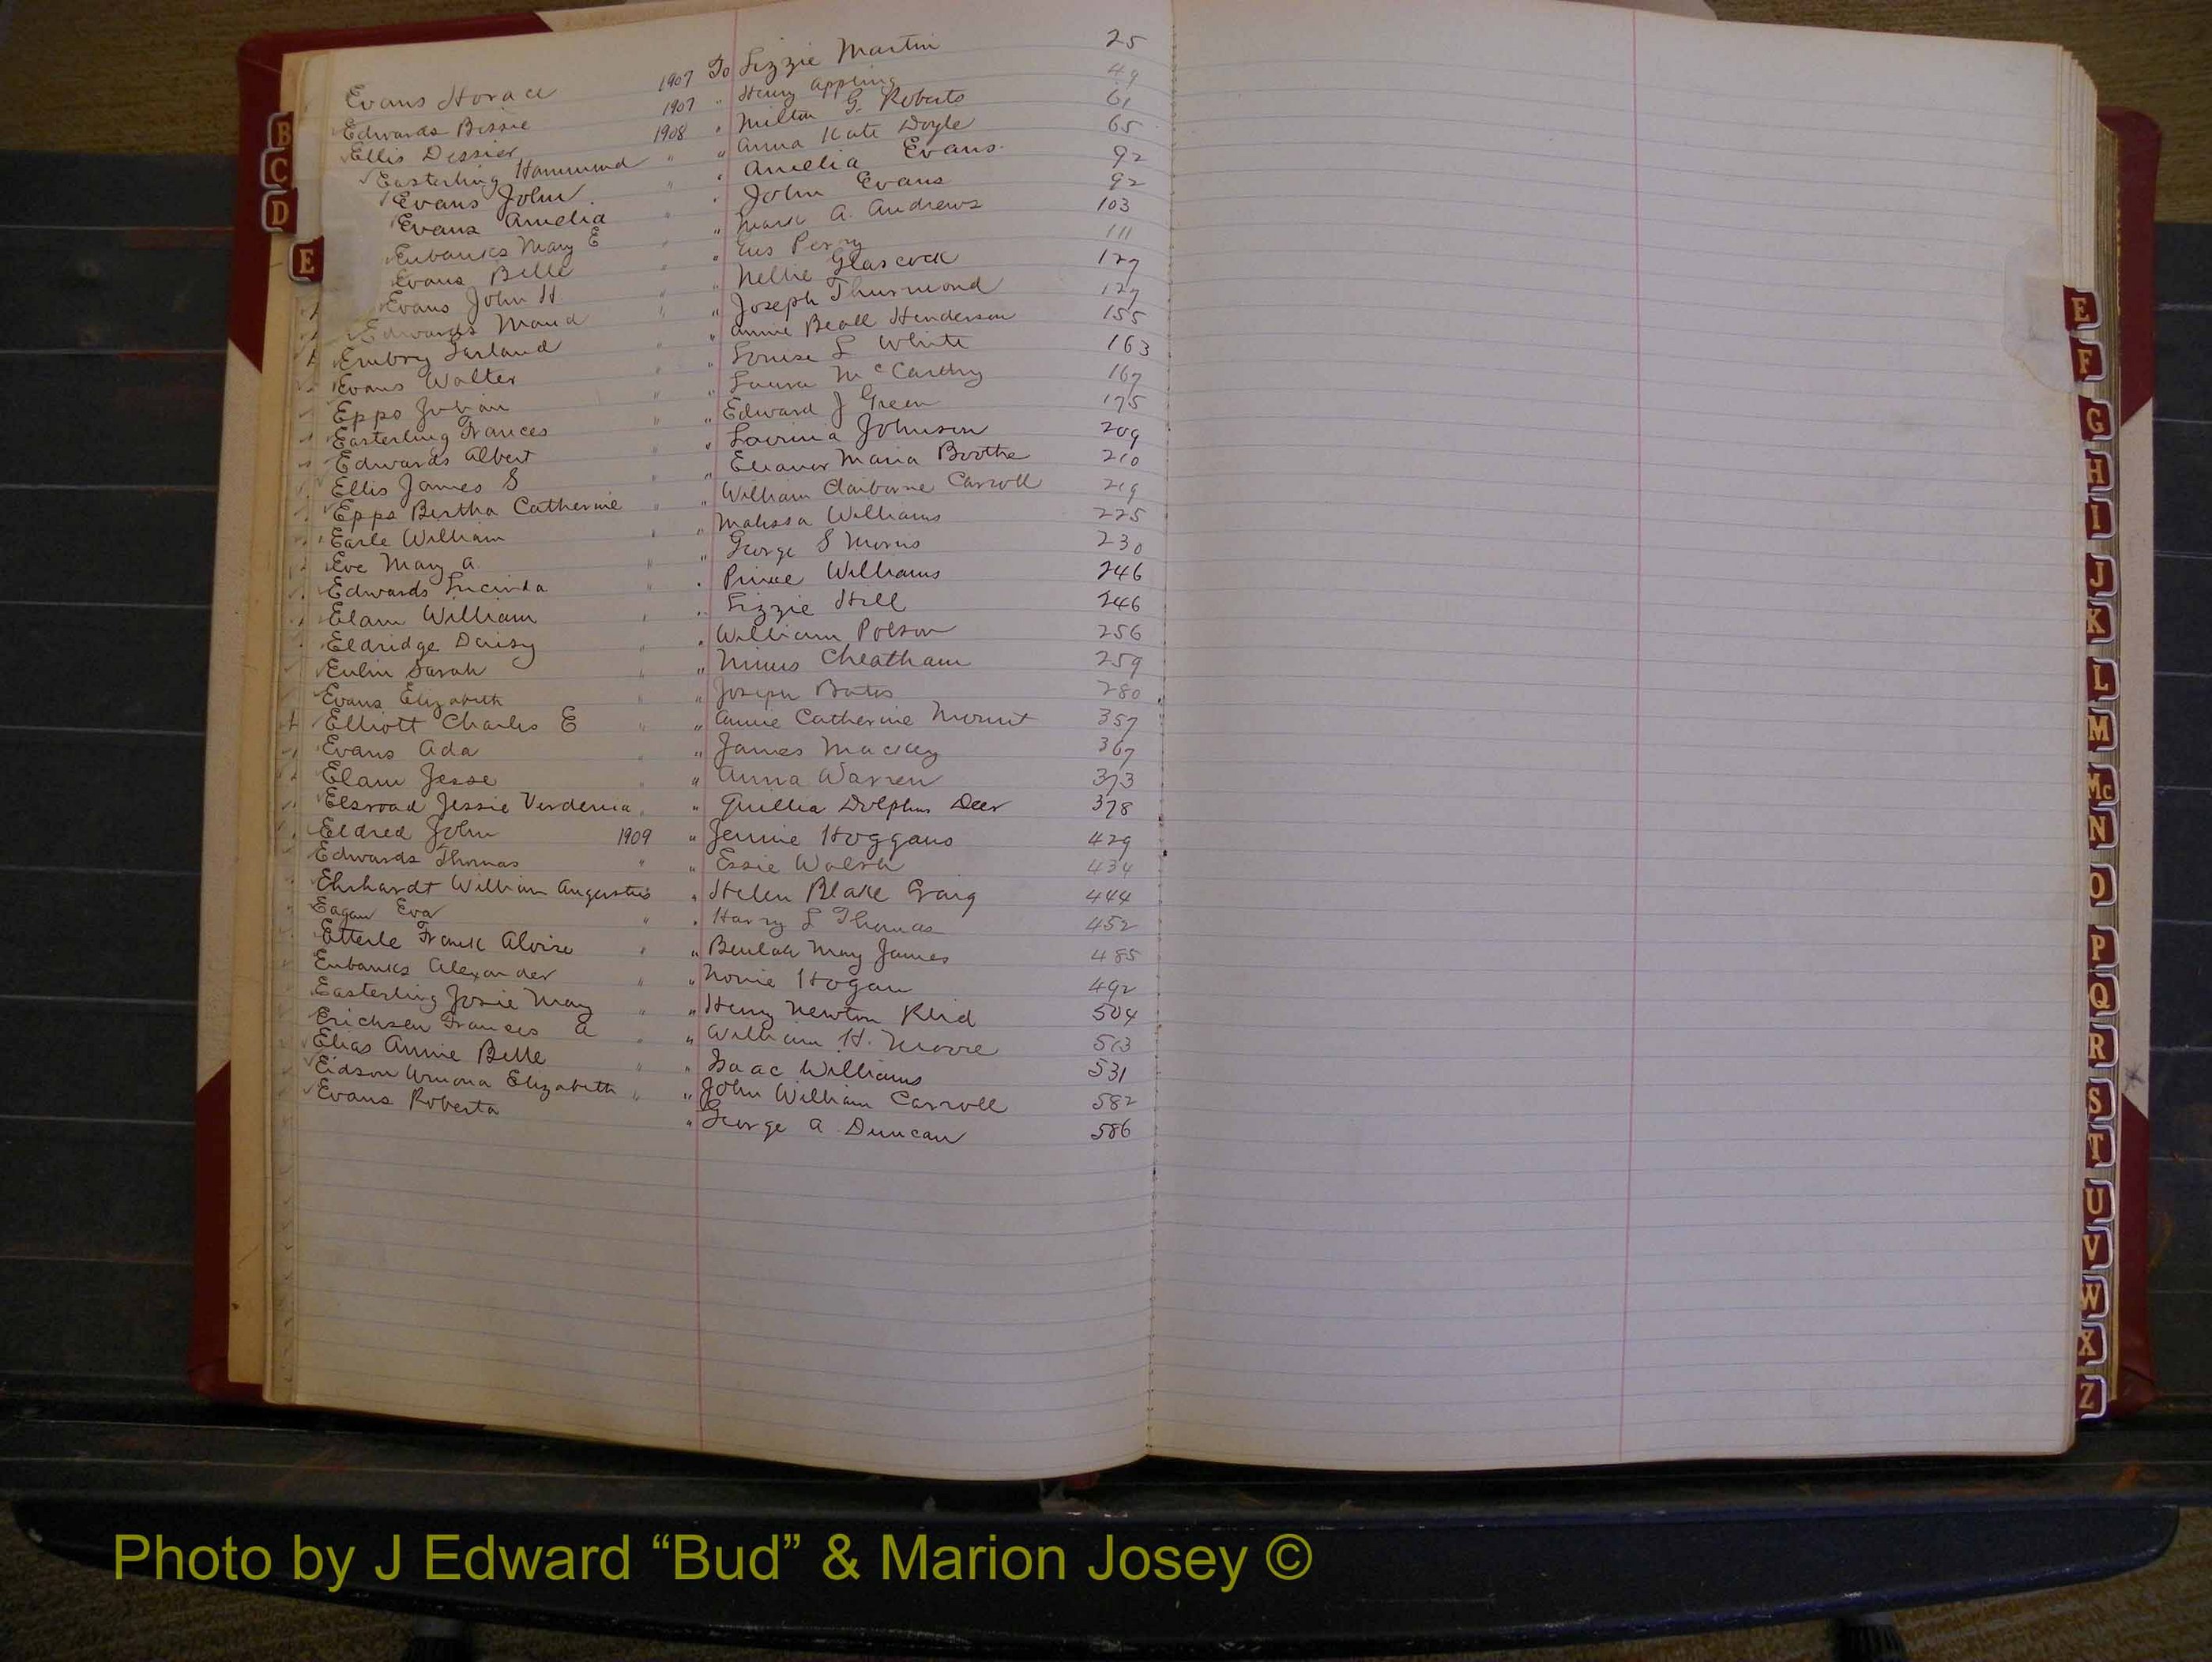 Evans Horace 1907 To Lizzie Martin 25
Edwards Bessie 1907 " Henry Appling 49
Ellis Dessier 1908 " Milton G. Roberts 61
Easterling Hammond " " Anna Kate Doyle 65
Evans John " " Amelia Evans 92
Evans Amelia " " John Evans 92
Eubanks Mary E " " Mark A. Andrews 103
Evans Belle " " Gus Perry 111
Evans John H " " Nellie Glascock 127
Edwards Maud " " Joseph Thurmond 127
Embry Garland " " Annie Beall Henderson 155
Evans Walter " " Louise L White 163
Epps Julian " " Laura McCarthy 167
Easterling Frances " " Edward J Green 175
Edwards Albert " " Lavinia Johnson 209
Ellis James S " " Eleanor Maria Boothe 210
Epps Bertha Catherine " " William Claiborne Carroll 219
Earle William " " Malissa Williams 225
Eve Mary A. " " George S Morris 230
Edwards Lucinda " " Prince Williams 246
Elam William " " Lizzie Hill 246
Eldridge Daisy " " William Polson 256
Eulin Sarah " " Minus Cheatham 259
Evans Elizabeth " " Joseph Bates 280
Elliott Charles E " " Annie Catherine Mount 357
Evans Ada " " James Mackey 367
Elam Jesse " " Anna Warren 373
Elsroad Jessie Verdenia " " Dolphus Deer 378
Eldred John 1909 " Jennie Hoggans 429
Edwards Thomas " " Essie Walsh 434
Ehrhardt William Augustus " Helen Blake Craig 444
Eagan Eva " " Harry L Thomas 452
Etterle Frank Aloise " " Beulah May James 485
Eubanks Alexander " " Nonie Hogan 492
Easterling Josie May " " Henry Newton Reid 504
Erichsen Frances A " " William H. Moore 513
Elias Annie Belle " " Isaac Williams 531
Eidson Elizabeth " " John William Carroll 582
Evans Roberta " George A Duncan 586
B
C
D
E
E
F
G
H
I
J
K
L
M
Mc
N
O
P
Q
R
S
T
U
V
W
X
Z
Photo by J Edward “Bud” & Marion Josey ©